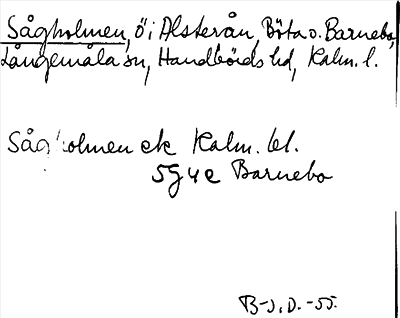 Sågholmen, ö i Alsterån, Böta o. Barnebo,
Långemåla sn, Handbörds hd, Kalm. l.
Sågholmen ek Kalm. bl.
5G4e Barnebo
B-J. D. -55.